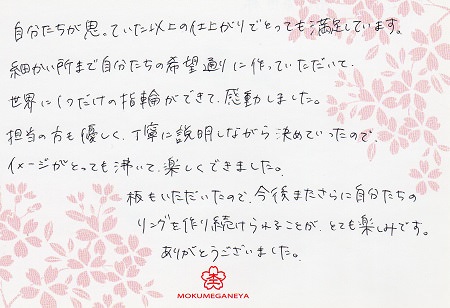 自分たちが思っていた以上の仕上がりでとっても満足しています。
細かい所まで自分たちの希望通りに作っていただいて、
世界に1つだけの指輪ができて、感動しました。
担当の方も優しく、丁寧に説明しながら決めていったので、
イメージがとっても沸いて、楽しくできました。
板もいただいたので、今後またさらに自分たちの
リングを作り続けられることが、とても楽しみです。
ありがとうございました。
MOKUMEGANEYA